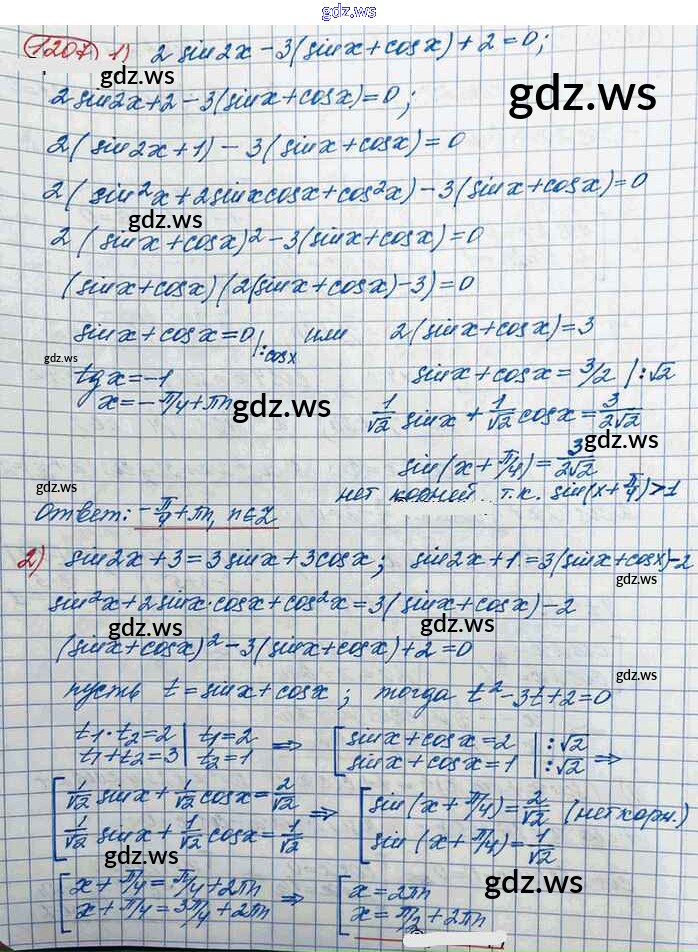 gdz.ws
1207 1) 2 sin2x - 3(sinx + cosx) + 2 = 0;
gdz.ws
gdz.ws
2 sin2x + 2 - 3(sinx + cosx) = 0;
2(sin2x + 1) - 3(sinx + cosx) = 0
2(sin²x + 2sinxcosx + cos²x) - 3(sinx + cosx) = 0
gdz.ws
gdz.ws
2(sinx + cosx)² - 3(sinx + cosx) = 0
(sinx + cosx)(2(sinx + cosx) - 3) = 0
sinx + cosx = 0 |:cosx или 2(sinx + cosx) = 3
gdz.ws
gdz.ws
tgx = -1 sinx + cosx = 3/2 |:√2
x = -π/4 + πn 1/√2 sinx + 1/√2 cosx = 3/2√2
gdz.ws
gdz.ws
sin(x + π/4) = 3/2√2
gdz.ws
нет корней т.к. sin(x + π/4) > 1
Ответ: -π/4 + πn, n∈Z
2) sin2x + 3 = 3sinx + 3cosx; sin2x + 1 = 3(sinx + cosx) - 2
gdz.ws
sin²x + 2sinx·cosx + cos²x = 3(sinx + cosx) - 2
gdz.ws
gdz.ws
(sinx + cosx)² - 3(sinx + cosx) + 2 = 0
gdz.ws
пусть t = sinx + cosx; тогда t² - 3t + 2 = 0
t₁·t₂ = 2 | t₁ = 2 ⇒ [ sinx + cosx = 2 |:√2
t₁ + t₂ = 3 | t₂ = 1 [ sinx + cosx = 1 |:√2 ⇒
gdz.ws
gdz.ws
[ 1/√2 sinx + 1/√2 cosx = 2/√2 ⇒ [ sin(x + π/4) = 2/√2 (нет корн.)
[ 1/√2 sinx + 1/√2 cosx = 1/√2 [ sin(x + π/4) = 1/√2
gdz.ws
gdz.ws
[ x + π/4 = π/4 + 2πn ⇒ [ x = 2πn
[ x + π/4 = 3π/4 + 2πn [ x = π/2 + 2πn
gdz.ws